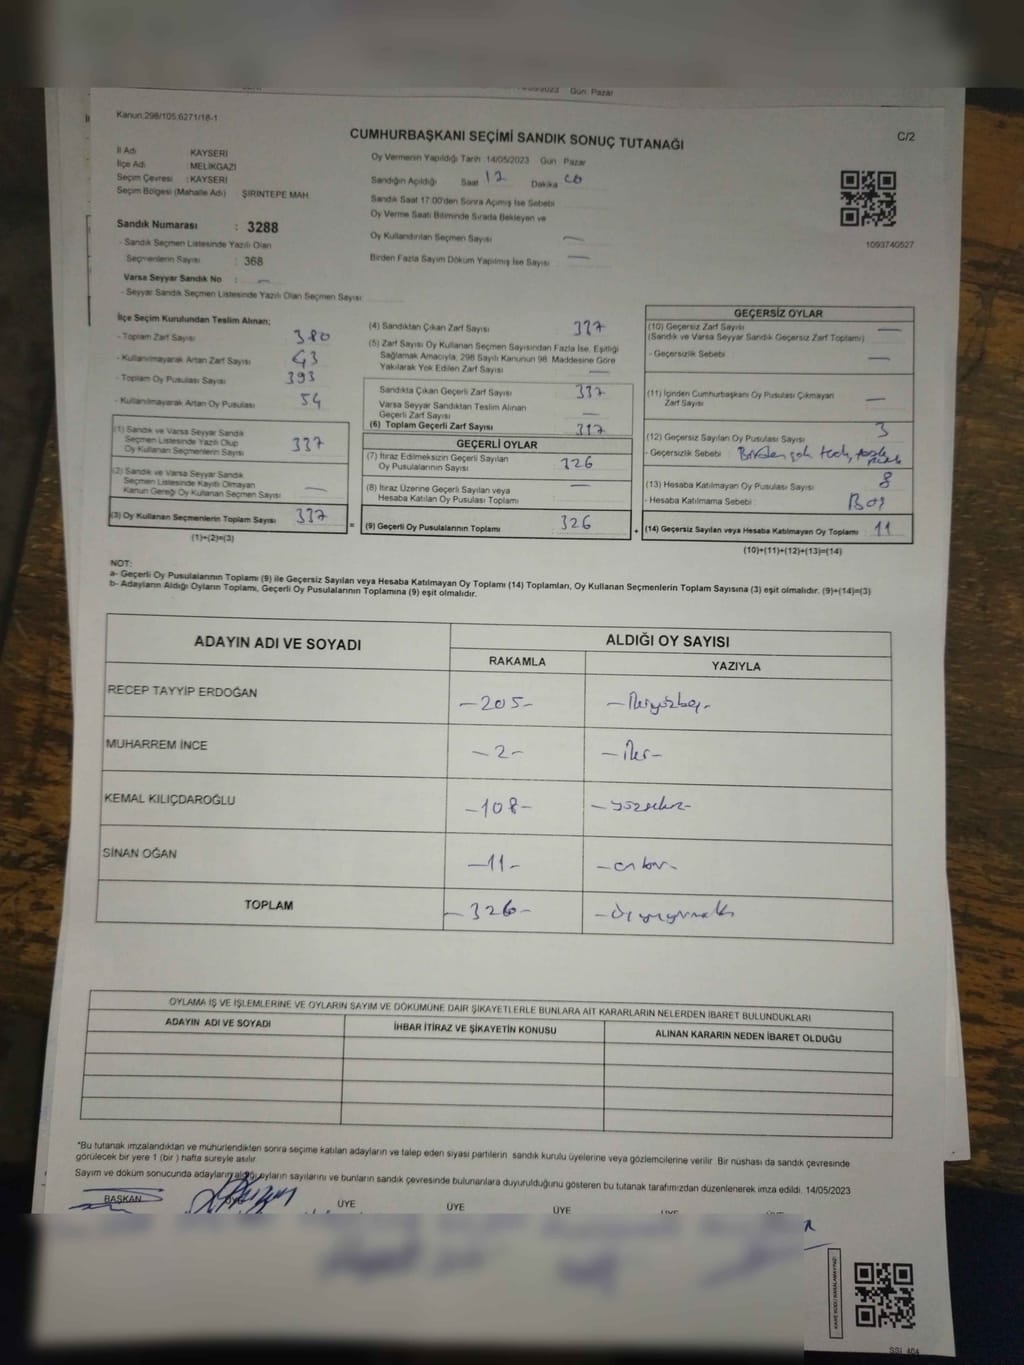 Gün Pazar
Kanun.298/105.6271/18-1
CUMHURBAŞKANI SEÇİMİ SANDIK SONUÇ TUTANAĞI
C/2
İl Adı KAYSERİ
İlçe Adı MELİKGAZİ
Seçim Çevresi : KAYSERİ
Seçim Bölgesi (Mahalle Adı) ŞİRİNTEPE MAH
Oy Vermenin Yapıldığı Tarih 14/05/2023 Gün Pazar
Sandığın Açıldığı Saat Dakika
Sandık Saat 17:00'den Sonra Açımış İse Sebebi
Oy Verme Saati Bitiminde Sırada Bekleyen ve
Oy Kullandırılan Seçmen Sayısı —
Birden Fazla Sayım Döküm Yapılmış İse Sayısı —
1093740527
Sandık Numarası : 3288
- Sandık Seçmen Listesinde Yazılı Olan
Seçmenlerin Sayısı : 368
Varsa Seyyar Sandık No : —
- Seyyar Sandık Seçmen Listesinde Yazılı Olan Seçmen Sayısı
İlçe Seçim Kurulundan Teslim Alınan;
- Toplam Zarf Sayısı 380
- Kullanılmayarak Artan Zarf Sayısı 43
- Toplam Oy Pusulası Sayısı 393
- Kullanılmayarak Artan Oy Pusulası 54
(1) Sandık ve Varsa Seyyar Sandık
Seçmen Listesinde Yazılı Olup
Oy Kullanan Seçmenlerin Sayısı 337
(2) Sandık ve Varsa Seyyar Sandık
Seçmen Listesinde Kayıtlı Olmayan
Kanun Gereği Oy Kullanan Seçmen Sayısı —
(3) Oy Kullanan Seçmenlerin Toplam Sayısı 337
(1)+(2)=(3)
=
(4) Sandıktan Çıkan Zarf Sayısı 337
(5) Zarf Sayısı Oy Kullanan Seçmen Sayısından Fazla İse, Eşitliği
Sağlamak Amacıyla, 298 Sayılı Kanunun 98. Maddesine Göre
Yakılarak Yok Edilen Zarf Sayısı —
Sandıkta Çıkan Geçerli Zarf Sayısı 337
Varsa Seyyar Sandıktan Teslim Alınan
Geçerli Zarf Sayısı —
(6) Toplam Geçerli Zarf Sayısı 337
GEÇERLİ OYLAR
(7) İtiraz Edilmeksizin Geçerli Sayılan
Oy Pusulalarının Sayısı 326
(8) İtiraz Üzerine Geçerli Sayılan veya
Hesaba Katılan Oy Pusulası Toplamı —
(9) Geçerli Oy Pusulalarının Toplamı 326
+
GEÇERSİZ OYLAR
(10) Geçersiz Zarf Sayısı —
(Sandık ve Varsa Seyyar Sandık Geçersiz Zarf Toplamı)
- Geçersizlik Sebebi —
(11) İçinden Cumhurbaşkanı Oy Pusulası Çıkmayan
Zarf Sayısı —
(12) Geçersiz Sayılan Oy Pusulası Sayısı 3
- Geçersizlik Sebebi : Birden çok
(13) Hesaba Katılmayan Oy Pusulası Sayısı 8
- Hesaba Katılmama Sebebi Boş
(14) Geçersiz Sayılan veya Hesaba Katılmayan Oy Toplamı 11
(10)+(11)+(12)+(13)=(14)
NOT:
a- Geçerli Oy Pusulalarının Toplamı (9) ile Geçersiz Sayılan veya Hesaba Katılmayan Oy Toplamı (14) Toplamları, Oy Kullanan Seçmenlerin Toplam Sayısına (3) eşit olmalıdır. (9)+(14)=(3)
b- Adayların Aldığı Oyların Toplamı, Geçerli Oy Pusulalarının Toplamına (9) eşit olmalıdır.
ADAYIN ADI VE SOYADI ALDIĞI OY SAYISI
RAKAMLA YAZIYLA
RECEP TAYYİP ERDOĞAN -205- -İkiyüzbeş-
MUHARREM İNCE -2- -İki-
KEMAL KILIÇDAROĞLU -108- -yüzsekiz-
SİNAN OĞAN -11- -onbir-
TOPLAM -326-
OYLAMA İŞ VE İŞLEMLERİNE VE OYLARIN SAYIM VE DÖKÜMÜNE DAİR ŞİKAYETLERLE BUNLARA AİT KARARLARIN NELERDEN İBARET BULUNDUKLARI
ADAYIN ADI VE SOYADI İHBAR İTİRAZ VE ŞİKAYETİN KONUSU ALINAN KARARIN NEDEN İBARET OLDUĞU
*Bu tutanak imzalandıktan ve mühürlendikten sonra seçime katılan adayların ve talep eden siyasi partilerin sandık kurulu üyelerine veya gözlemcilerine verilir. Bir nüshası da sandık çevresinde
görülecek bir yere 1 (bir) hafta süreyle asılır.
Sayım ve döküm sonucunda adayların aldığı oyların sayılarını ve bunların sandık çevresinde bulunanlara duyurulduğunu gösteren bu tutanak tarafımızdan düzenlenerek imza edildi. 14/05/2023
BAŞKAN ÜYE ÜYE ÜYE ÜYE
KARE KODU KARALAMAYINIZ!
SSİ 464